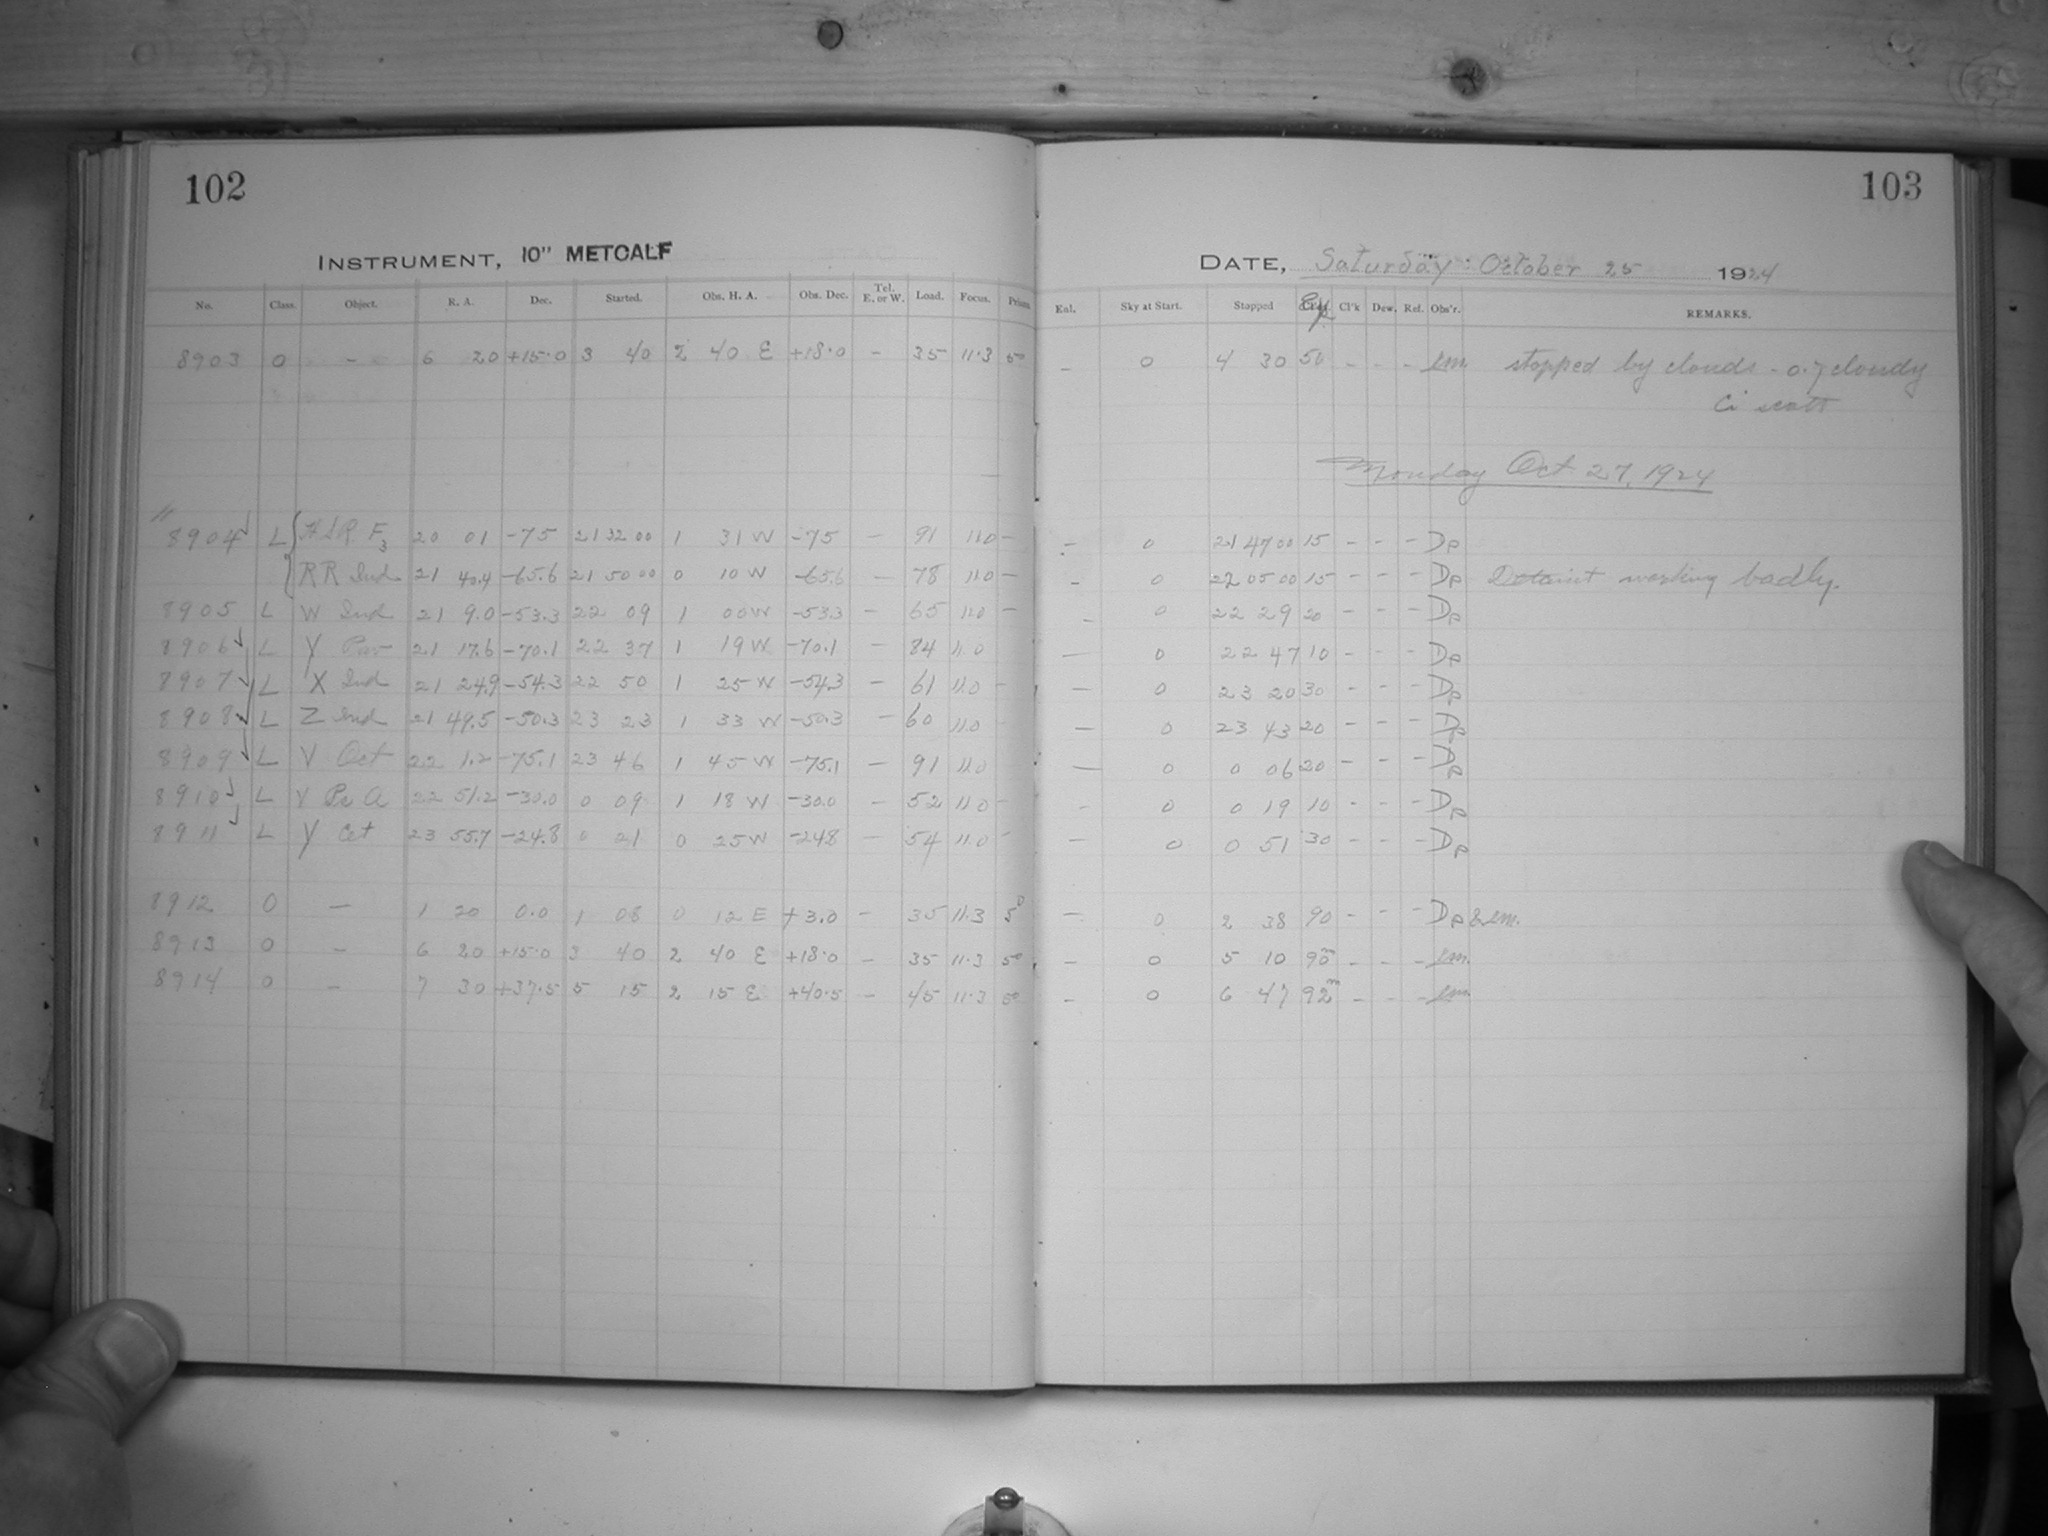 102
103
INSTRUMENT, 10" METCALF
DATE, Saturday October 25 1924
No. Class. Object. R. A. Dec. Started. Obs. H. A. Obs. Dec. Tel. E. or W. Load. Focus. Prism. Eal. Sky at Start. Stopped Exp Cl'k Dew. Rel. Obs'r. REMARKS.
8903 O - 6 20 +15.0 3 40 2 40 E +18.0 - 35 11.3 5° - 0 4 30 50 - - - em stopped by clouds - 0.7 cloudy
Ci scatt
Monday Oct 27, 1924
8904 L F3 20 01 -75 21 32 00 1 31 W -75 - 91 11.0 - - 0 21 47 00 15 - - - Dp
RR Ind 21 40.4 -65.6 21 50 00 0 10 W -65.6 - 78 11.0 - - 0 22 05 00 15 - - - Dp working badly.
8905 L W Ind 21 9.0 -53.3 22 09 1 00 W -53.3 - 65 11.0 - - 0 22 29 20 - - - Dp
8906 L Y Pav 21 17.6 -70.1 22 37 1 19 W -70.1 - 84 11.0 - 0 22 47 10 - - - Dp
8907 L X Ind 21 24.9 -54.3 22 50 1 25 W -54.3 - 61 11.0 - - 0 23 20 30 - - - Dp
8908 L Z Ind 21 49.5 -50.3 23 23 1 33 W -50.3 - 60 11.0 - 0 23 43 20 - - - Dp
8909 L V Oct 22 1.2 -75.1 23 46 1 45 W -75.1 - 91 11.0 - 0 0 06 20 - - - Dp
8910 L V Ps A 22 51.2 -30.0 0 09 1 18 W -30.0 - 52 11.0 - - 0 0 19 10 - - - Dp
8911 L Y Cet 23 55.7 -24.8 0 21 0 25 W -24.8 - 54 11.0 - - 0 0 51 30 - - - Dp
8912 O - 1 20 0.0 1 08 0 12 E +3.0 - 35 11.3 5° - 0 2 38 90 - - - Dp & em.
8913 O - 6 20 +15.0 3 40 2 40 E +18.0 - 35 11.3 5° - 0 5 10 90m - - - em.
8914 O - 7 30 +37.5 5 15 2 15 E +40.5 - 45 11.3 5° - 0 6 47 92m - - - em